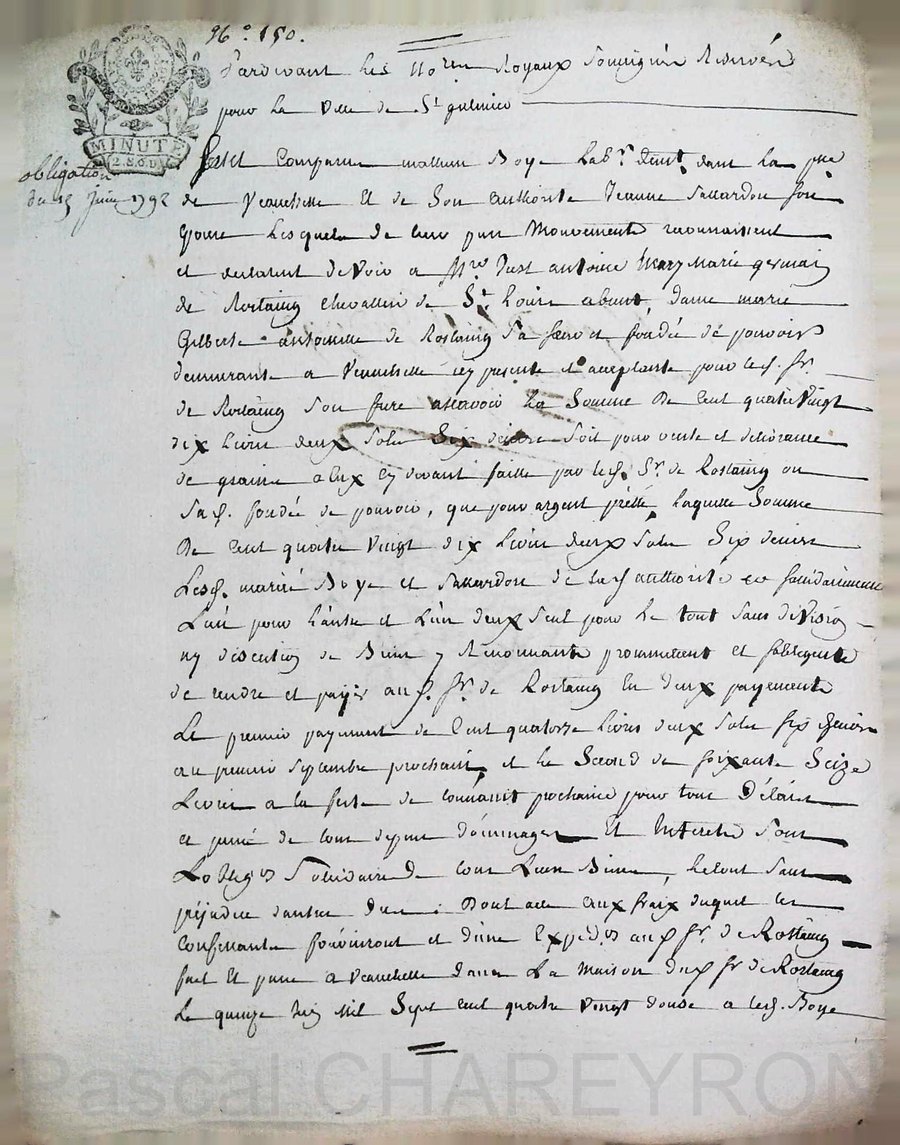 N.° 150.
MINUTE
2.S.6.D
obligation
du 15 juin 1792
Pardevant les No.res Royaux Soussignés Réservés
pour la ville de St galmier
Est Comparu mathieu Boye Lab.r demt. dans la p.sse
de Veauchette et de Son authorité Jeanne
Lesquels de leur pure Mouvements reconnaissent
et declarent devoir a Mre Just antoine Mary Marie germain
de Rostaing chevallier de St Louis absent, dame marie
Gilberte antoinette de Rostaing Sa soeur et fondée de pouvoir
demeurante a Veauchette icy presente et acceptante pour led. Sr.
de Rostaing Son frere assavoir La Somme De Cent quatre Vingt
dix livres deux Sols Six deniers Soit pour vente et delivrance
de grains a eux cy devant faitte par led. Sr. de Rostaing ou
Sad. fondée de pouvoir, que pour argent prêtté, laquelle Somme
De Cent quatre Vingt dix Livres deux Sols Six deniers
Lesd. mariés Boye et de lad authorité solidairement
L'un pour l'autre et L'un d'eux Seul pour Le tout Sans division
ny discution de Biens y Renonçants promettent et s'obligent
de rendre et payer aud. Sr. de Rostaing En deux payements
Le premier payement de Cent quatorze livres deux Sols six deniers
au premier Septembre prochain, et le Second de soixante Seize
Livres a la feste de prochaine pour tout Délais
et peine de tous depens dommages Et Interets Sous
L'oblig.on Solidaire De tous Leurs Biens, Le tout Sans
préjudice d'autres Dus. Dont acte aux fraix duquel les
Confessants fourniront et d'une Exped.on aud Sr. de Rostaing
fait Et passé a Veauchette dans La Maison dud Sr de Rostaing
Le quinze Juin Mil Sept Cent quatre Vingt douze a led. Boye
Pascal CHAREYRON